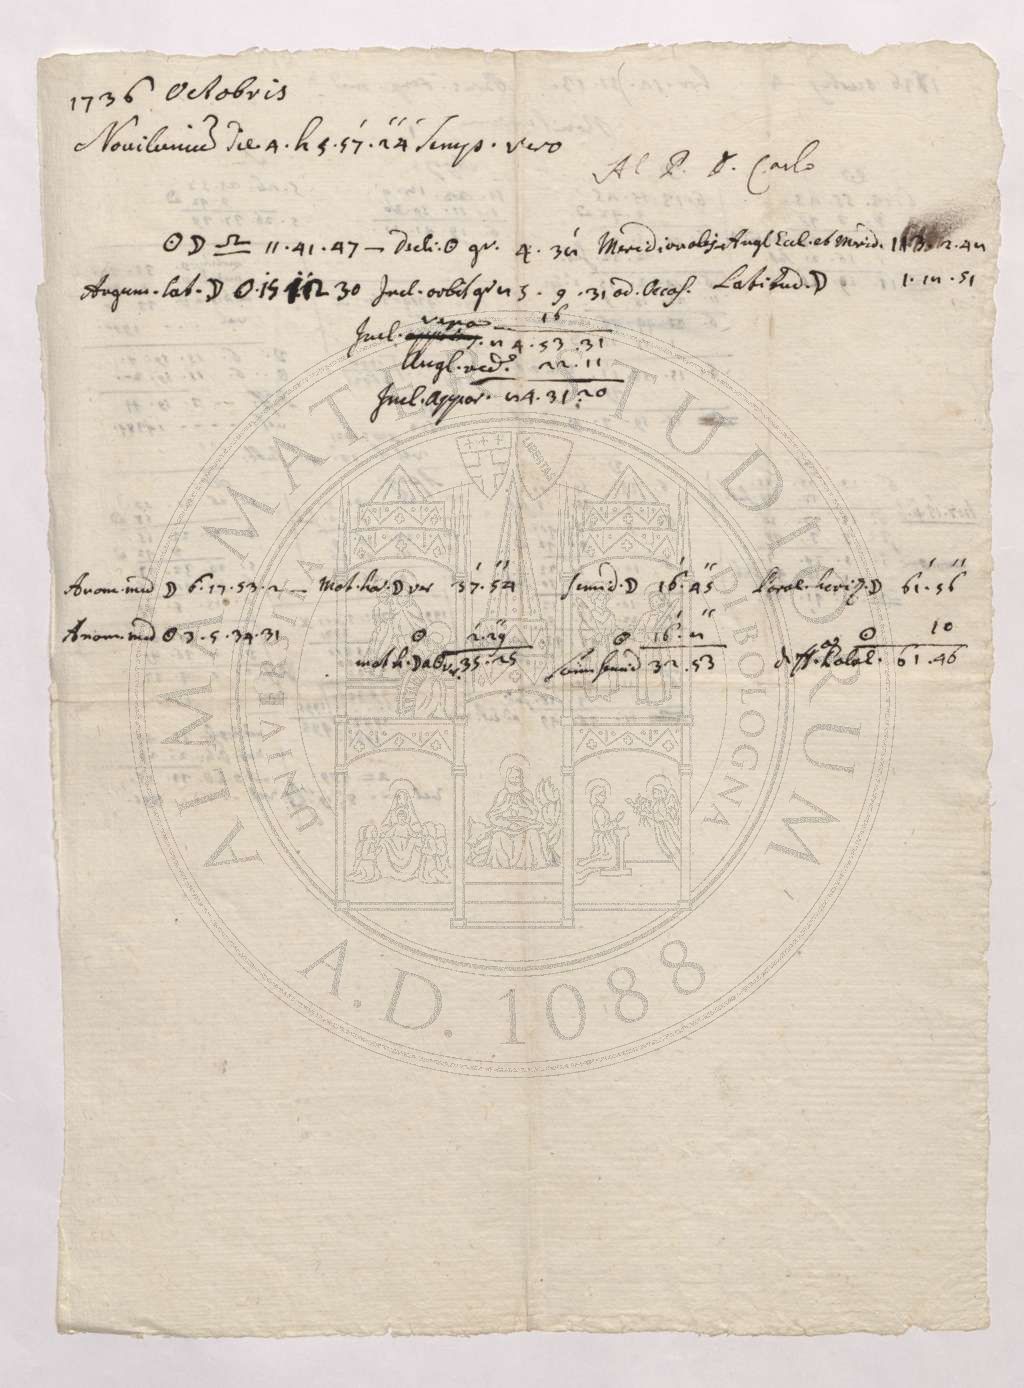 1736 Octobris
Noviluniū die. 4. h 5. 57'. 24'' temp. vero
Al P. D. Carlo
☉ ☽ ♎ 11. 41. 47 — Decli. ☉ gr. 4. Meridionalis Angl Ecl. et Merid.
Argum. lat. ☽ 0. 15 30 Incl. orbit gr 5. 9. 31 ad Occas. Latitud. ☽ 51
16
Incl. vera 4. 53. 31
Angl. 22. 11
Incl. appar. 4. 31. 20
Anom. med ☽ 6. 17. 53. 2 — Mot. hor. ☽ ver 37'. 54'' Semid. ☽ 16'. 45'' Paral. horiz. ☽ 61'. 56''
Anom. med ☉ 3. 5. 34. 31 ☉ 2'. 29'' ☉ 16'. ☉ 10
mot h. ☽ a ☉ 35. 25 Sum semid 32. 53 diff. Paral. 61. 46
ALMA MATER STUDIORUM
UNIVERSITÀ DI BOLOGNA
LIBERTAS
A.D. 1088